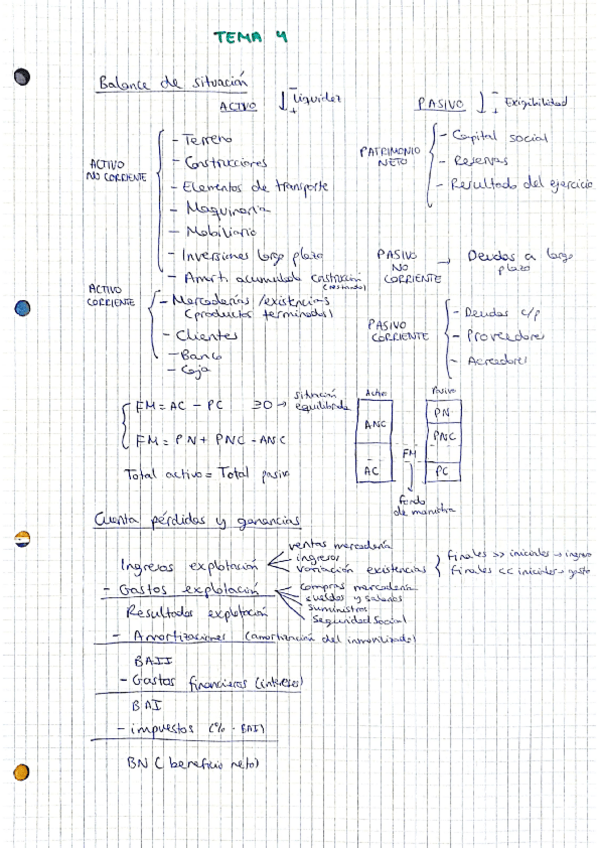 TEMA 4
Balance de situación
ACTIVO ↓ - Liquidez +
PASIVO ↓ - Exigibilidad +
ACTIVO NO CORRIENTE
- Terreno
- Construcciones
- Elementos de transporte
- Maquinaria
- Mobiliario
- Inversiones largo plazo
- Amort. acumulada construcción
PATRIMONIO NETO
- Capital social
- Reservas
- Resultado del ejercicio
PASIVO NO CORRIENTE → Deudas a largo plazo
ACTIVO CORRIENTE
- Mercaderías / existencias
(productos terminados)
- Clientes
- Banco
- Caja
PASIVO CORRIENTE
- Deudas c/p
- Proveedores
- Acreedores
FM = AC - PC ≥0 → situación equilibrada
FM = PN + PNC - ANC
Total activo = Total pasivo
Activo
ANC
AC
Pasivo
PN
PNC
PC
FM
fondo de maniobra
Cuenta pérdidas y ganancias
Ingresos explotación
ventas mercadería
ingresos
variación existencias
finales >> iniciales → ingreso
finales << iniciales → gasto
- Gastos explotación
compras mercadería
sueldos y salarios
suministros
Seguridad social
Resultados explotación
- Amortizaciones (amortización del inmovilizado)
BAII
- Gastos financieros (intereses)
BAI
- impuestos (% · BAI)
BN (beneficio neto)